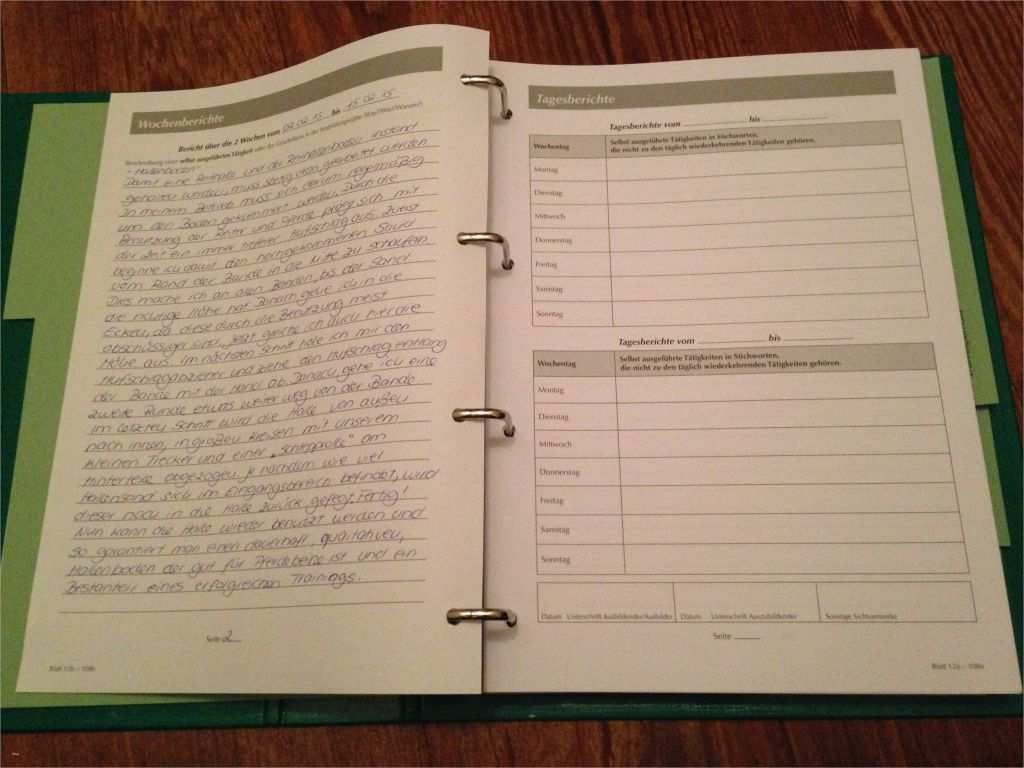 Wochenberichte
Bericht über die 2 Wochen vom 02.02.15 bis 15.02.15
Beschreibung einer selbst ausgeführten Tätigkeit oder des Geschehens in der
- Hallenboden -
Damit eine Reithalle und der Reithallenboden instand
gehalten werden, muss stetig daran gearbeitet werden
In meinem Betrieb muss sich darum regelmäßig
um den Boden gekümmert werden. Durch die
Benutzung der Reiter und Pferde prägt sich mit
der Zeit ein immer tieferer Hufschlag aus. Zuerst
beginne ich damit den reingekommenen Sand
vom Rand der Bande in die Mitte zu schaufeln
Dies mache ich an allen Banden, bis der Sand
die richtige Höhe hat. Danach gehe ich in die
Ecken, da diese durch die Benutzung meist
abschüssig sind. Jetzt gleiche ich auch hier die
Höhe aus. Im nächsten Schritt hole ich mir den
Hufschlagabzieher und ziehe den Hufschlag entlang
der Bande mit der Hand ab. Danach gehe ich eine
zweite Runde etwas weiter weg von der Bande.
Im letzten Schritt wird die Halle von außen
nach innen, in großen Kreisen mit unserem
kleinen Trecker und einer am
Hinterteil abgezogen. Je nachdem wie viel
Hallensand sich im Eingangsbereich befindet, wird
dieser noch in die Halle zurück gefegt. Fertig!
Nun kann die Halle wieder benutzt werden und
so garantiert man einen dauerhaft, qualitativen,
Hallenboden der gut für Pferdebeine ist und ein
Bestanteil eines erfolgreichen Trainings.
Seite 2
Blatt 12b – 108b
Tagesberichte
Tagesberichte vom bis
Wochentag Selbst ausgeführte Tätigkeiten in Stichworten,
die nicht zu den täglich wiederkehrenden Tätigkeiten gehören.
Montag
Dienstag
Mittwoch
Donnerstag
Freitag
Samstag
Sonntag
Tagesberichte vom bis
Wochentag Selbst ausgeführte Tätigkeiten in Stichworten,
die nicht zu den täglich wiederkehrenden Tätigkeiten gehören.
Montag
Dienstag
Mittwoch
Donnerstag
Freitag
Samstag
Sonntag
Datum Unterschrift Ausbildender/Ausbilder Datum Unterschrift Auszubildender Sonstige Sichtvermerke
Seite
Blatt 12a – 108a